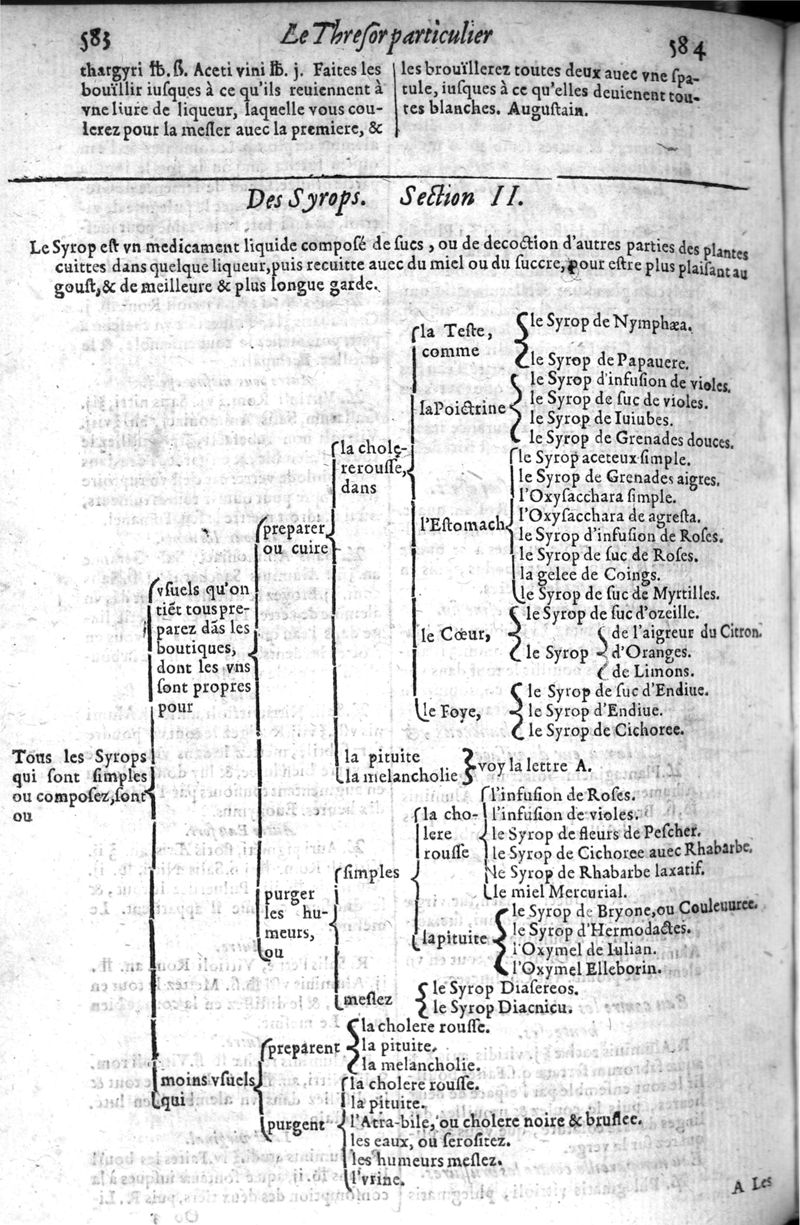 583
Le Thresor particulier
584
thargyri ℔. ß. Aceti vini ℔. j. Faites les
boüillir iusques à ce qu'ils reuiennent à
vne liure de liqueur, laquelle vous cou-
lerez pour la mesler auec la premiere, &
les broüillerez toutes deux auec vne spa-
tule, iusques à ce qu'elles deuienent tou-
tes blanches. Augustain.
Des Syrops. Section II.
Le Syrop est vn medicament liquide composé de sucs, ou de decoction d'autres parties des plantes
cuittes dans quelque liqueur, puis recuitte auec du miel ou du succre, pour estre plus plaisant au
goust, & de meilleure & plus longue garde.
Tous les Syrops
qui sont simples
ou composez, sont
ou
vsuels qu'on
tiẽt tous pre-
parez dãs les
boutiques,
dont les vns
sont propres
pour
preparer
ou cuire
la chole-
re rousse,
dans
la Teste,
comme
le Syrop de Nymphæa.
le Syrop de Papauere.
la Poictrine
le Syrop d'infusion de violes.
le Syrop de suc de violes.
le Syrop de Iuiubes.
le Syrop de Grenades douces.
l'Estomach
le Syrop aceteux simple.
le Syrop de Grenades aigres.
l'Oxysacchara simple.
l'Oxysacchara de agresta.
le Syrop d'infusion de Roses.
le Syrop de suc de Roses.
la gelee de Coings.
le Syrop de suc de Myrtilles.
le Cœur,
le Syrop de suc d'ozeille.
le Syrop
de l'aigreur du Citron.
d'Oranges.
de Limons.
le Foye,
le Syrop de suc d'Endiue.
le Syrop d'Endiue.
le Syrop de Cichoree.
la pituite
la melancholie
voy la lettre A.
purger
les hu-
meurs,
ou
simples
la cho-
lere
rousse
l'infusion de Roses.
l'infusion de violes.
le Syrop de fleurs de Pescher.
le Syrop de Cichoree auec Rhabarbe.
le Syrop de Rhabarbe laxatif.
le miel Mercurial.
la pituite
le Syrop de Bryone, ou Couleuuree.
le Syrop d'Hermodactes.
l'Oxymel de Iulian.
l'Oxymel Elleborin.
meslez
le Syrop Diasereos.
le Syrop Diacnicu.
moins vsuels
qui
preparent
la cholere rousse.
la pituite.
la melancholie.
purgent
la cholere rousse.
la pituite.
l'Atra-bile, ou cholere noire & bruslee.
les eaux, ou serositez.
les humeurs meslez.
l'vrine.
A Les